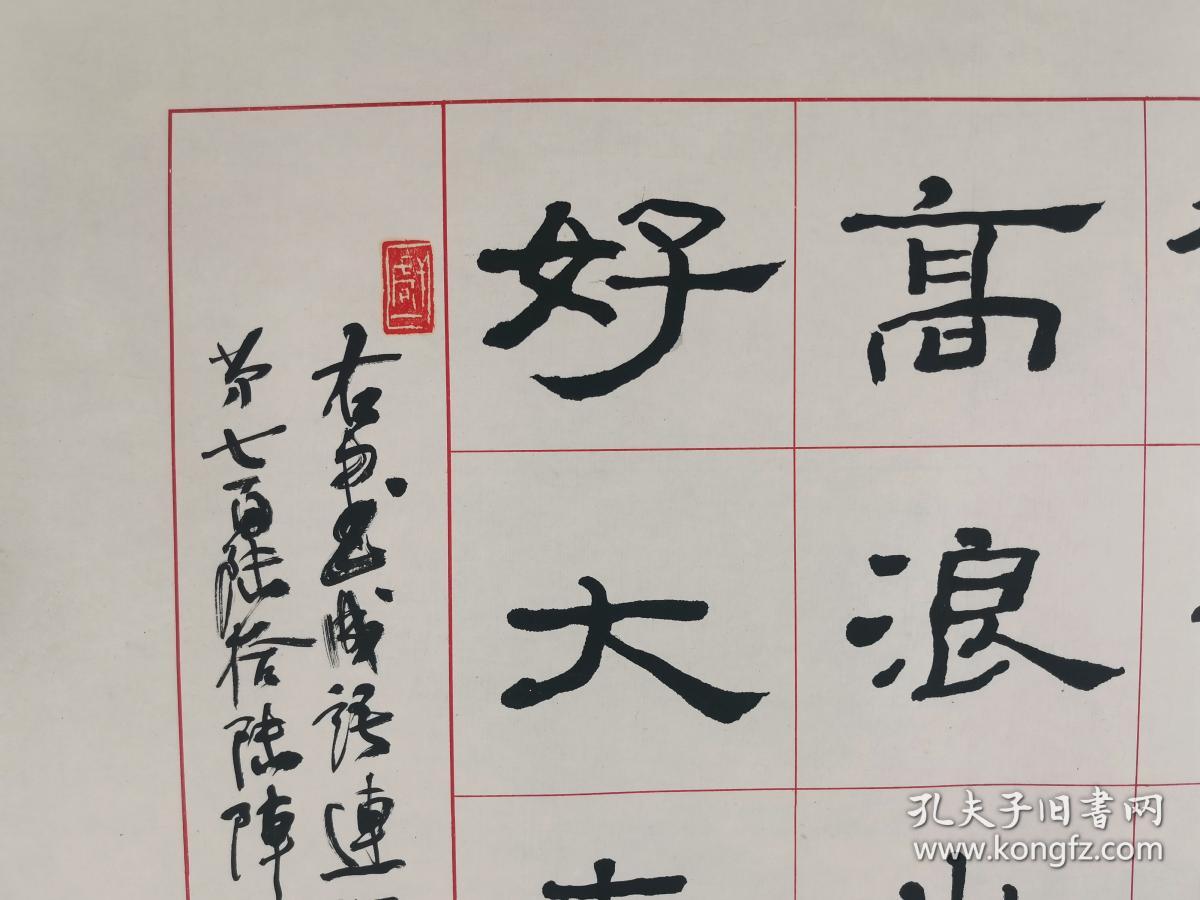 高浪
好大
右书书成语连
第七百陆拾陆阵
孔夫子旧书网
www.kongfz.com